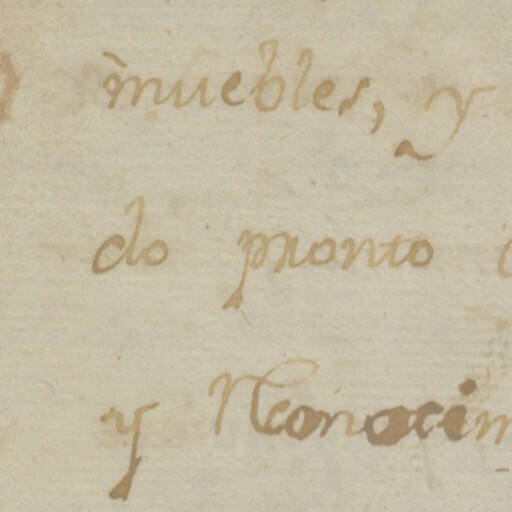 muebles, y
do pronto
y Reconocim